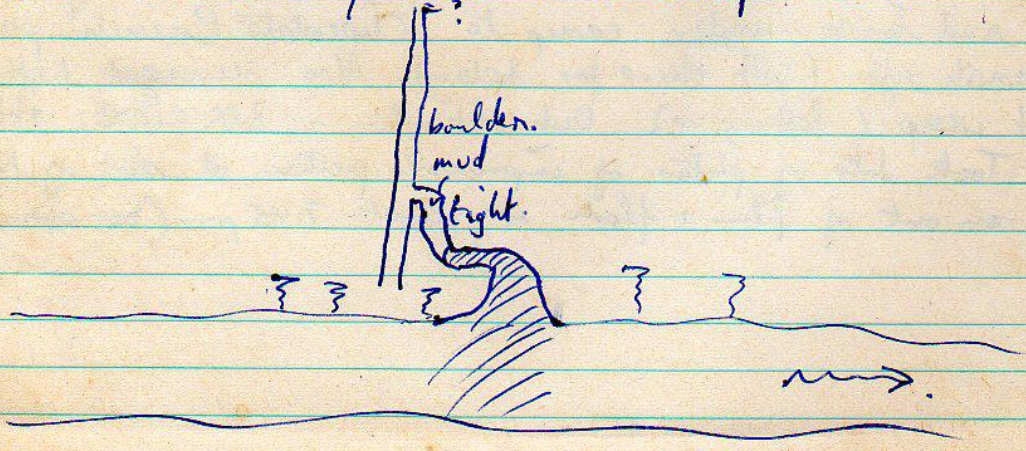 ?
boulder.
mud
tight.